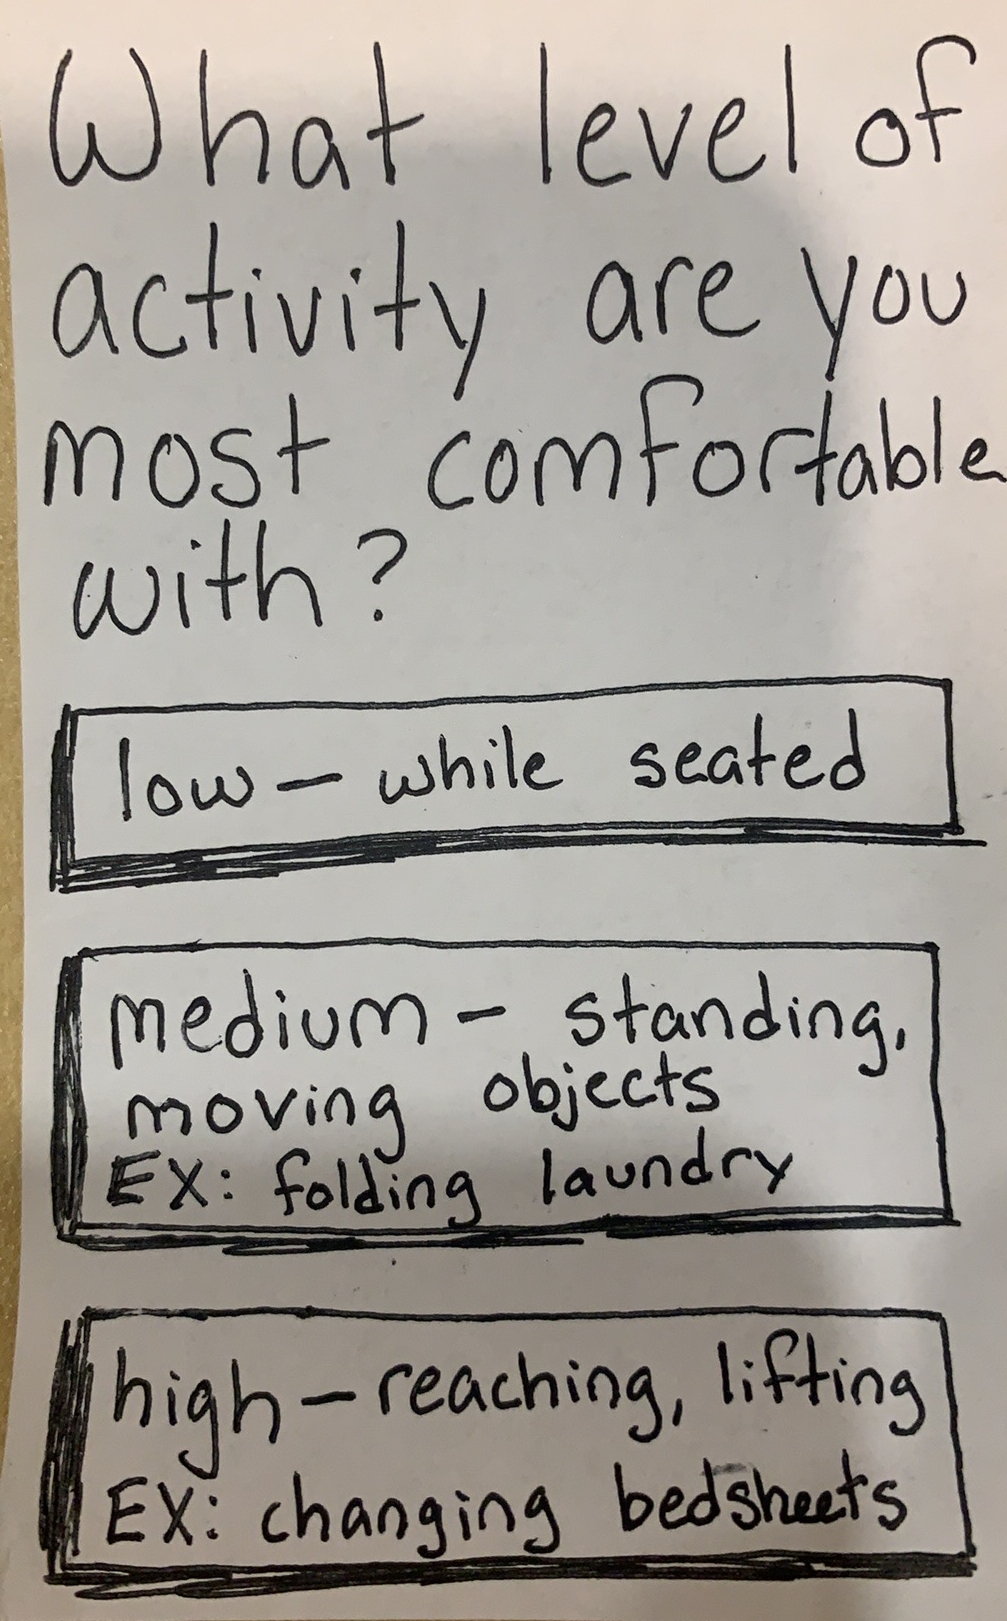 What level of
activity are you
most comfortable
with?
low – while seated
medium – standing,
moving objects
EX: folding laundry
high – reaching, lifting
EX: changing bedsheets